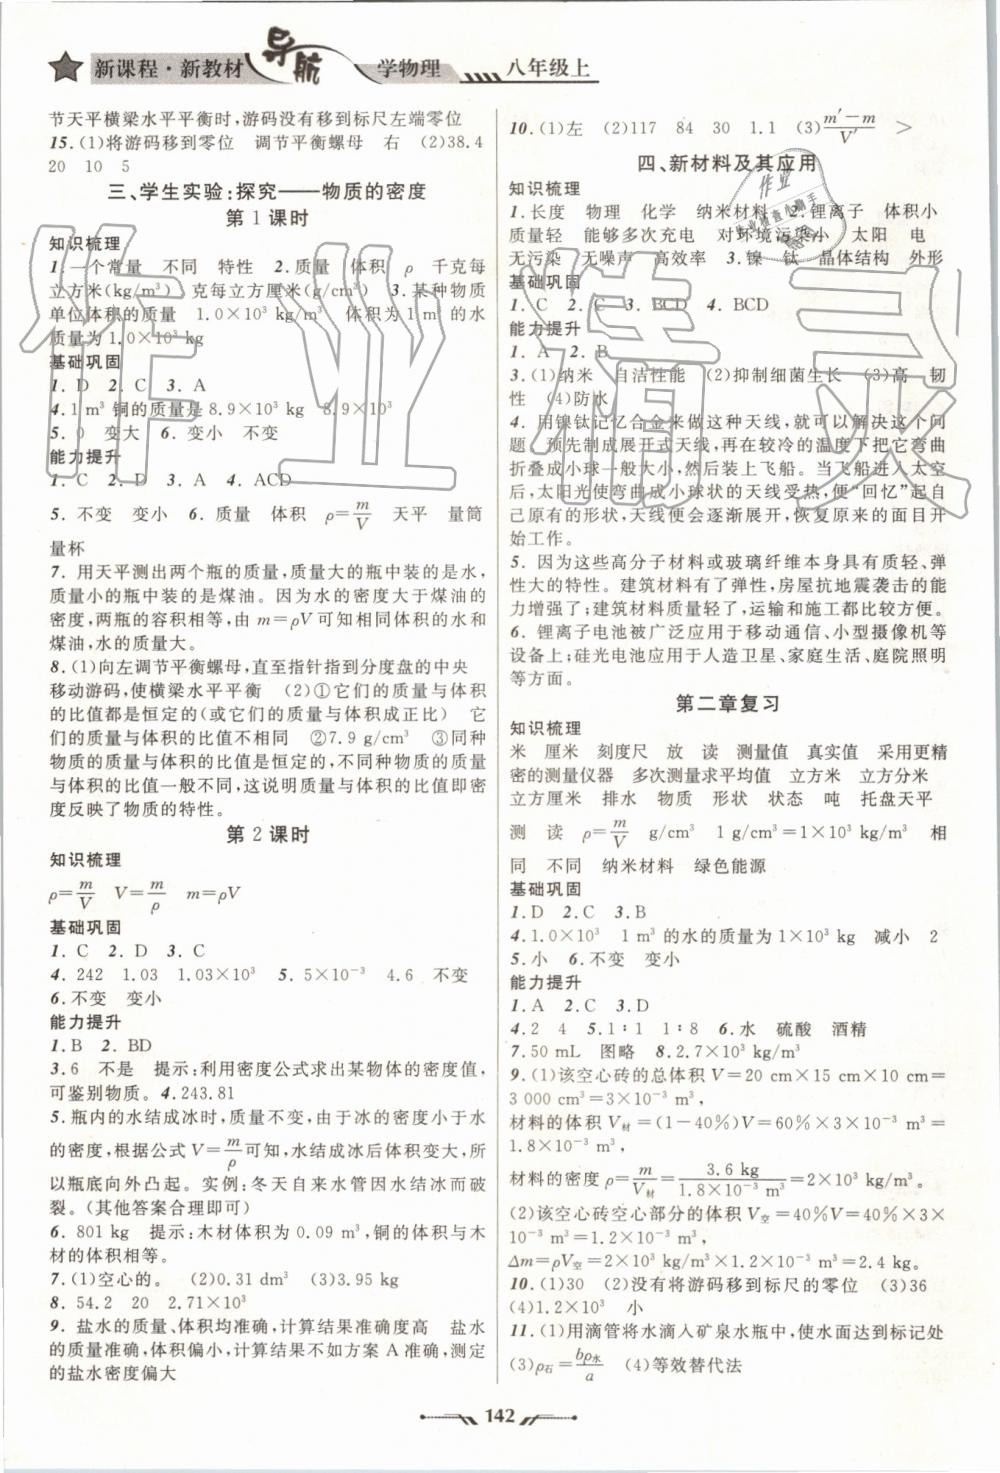 新课程·新教材 导航 学物理 八年级上
节天平横梁水平平衡时,游码没有移到标尺左端零位
15.(1)将游码移到零位 调节平衡螺母 右 (2)38.4
20 10 5
三、学生实验:探究——物质的密度
第1课时
知识梳理
1.一个常量 不同 特性 2.质量 体积 ρ 千克每
立方米(kg/m³) 克每立方厘米(g/cm³) 3.某种物质
单位体积的质量 1.0×10³ kg/m³ 体积为1 m³的水
质量为1.0×10³ kg
基础巩固
1. D 2. C 3. A
4.1 m³铜的质量是8.9×10³ kg 8.9×10³
5.0 变大 6.变小 不变
能力提升
1. C 2. D 3. A 4. ACD
5. 不变 变小 6. 质量 体积 ρ=m/V 天平 量筒
量杯
7. 用天平测出两个瓶的质量,质量大的瓶中装的是水,
质量小的瓶中装的是煤油。因为水的密度大于煤油的
密度,两瓶的容积相等,由m=ρV可知相同体积的水和
煤油,水的质量大。
8.(1)向左调节平衡螺母,直至指针指到分度盘的中央
移动游码,使横梁水平平衡 (2)①它们的质量与体积
的比值都是恒定的(或它们的质量与体积成正比) 它
们的质量与体积的比值不相同 ②7.9 g/cm³ ③同种
物质的质量与体积的比值是恒定的,不同种物质的质量与
体积的比值一般不同,这说明质量与体积的比值即密
度反映了物质的特性。
第2课时
知识梳理
ρ=m/V V=m/ρ m=ρV
基础巩固
1. C 2. D 3. C
4. 242 1.03 1.03×10³ 5. 5×10⁻³ 4.6 不变
6.不变 变小
能力提升
1. B 2. BD
3.6 不是 提示:利用密度公式求出某物体的密度值,
可鉴别物质。4.243.81
5.瓶内的水结成冰时,质量不变,由于冰的密度小于水
的密度,根据公式V=m/ρ可知,水结成冰后体积变大,所
以瓶底向外凸起。实例:冬天自来水管因水结冰而破
裂。(其他答案合理即可)
6. 801 kg 提示:木材体积为0.09 m³,铜的体积与木
材的体积相等。
7.(1)空心的。 (2)0.31 dm³ (3)3.95 kg
8. 54.2 20 2.71×10³
9. 盐水的质量、体积均准确,计算结果准确度高 盐水
的质量准确,体积偏小,计算结果不如方案A准确,测定
的盐水密度偏大
10.(1)左 (2)117 84 30 1.1 (3)m′-m/V′ >
四、新材料及其应用
知识梳理
1.长度 物理 化学 纳米材料 2.锂离子 体积小
质量轻 能够多次充电 对环境污染小 太阳 电
无污染 无噪声 高效率 3.镍 钛 晶体结构 外形
基础巩固
1. C 2. C 3. BCD 4. BCD
能力提升
1. A 2. B
3.(1)纳米 自洁性能 (2)抑制细菌生长 (3)高 韧
性 (4)防水
4. 用镍钛记忆合金来做这种天线,就可以解决这个问
题。预先制成展开式天线,再在较冷的温度下把它弯曲
折叠成小球一般大小,装好上飞船。当飞船进入太空
后,太阳光使弯曲成小球状的天线受热,便“回忆”起自
己原有的形状,天线便会逐渐展开,恢复原来的面目开
始工作。
5. 因为这些高分子材料或玻璃纤维本身具有质轻、弹
性大的特性。建筑材料有了弹性,房屋抗地震袭击的能
力增强了;建筑材料质量轻了,运输和施工都比较方便。
6. 锂离子电池被广泛应用于移动通信、小型摄像机等
设备上;硅光电池应用于人造卫星、家庭生活、庭院照明
等方面。
第二章复习
知识梳理
米 厘米 刻度尺 放 读 测量值 真实值 采用更精
密的测量仪器 多次测量求平均值 立方米 立方分米
立方厘米 排水 物质 形状 状态 吨 托盘天平
测 读 ρ=m/V g/cm³ 1 g/cm³=1×10³ kg/m³ 相
同 不同 纳米材料 绿色能源
基础巩固
1. D 2. C 3. B
4.1.0×10³ 1 m³的水的质量为1×10³ kg 减小 2
5.小 6.不变 变小
能力提升
1. A 2. C 3. D
4.2 4 5.1∶1 1∶8 6.水 硫酸 酒精
7.50 mL 图略 8.2.7×10³ kg/m³
9.(1)该空心砖的总体积V=20 cm×15 cm×10 cm=
3 000 cm³=3×10⁻³ m³,
材料的体积V材=(1-40%)V=60%×3×10⁻³ m³=
1.8×10⁻³ m³,
材料的密度ρ=m/V材=3.6 kg/1.8×10⁻³ m³=2×10³ kg/m³。
(2)该空心砖空心部分的体积V空=40%V=40%×3×
10⁻³ m³=1.2×10⁻³ m³,
Δm=ρV空=2×10³ kg/m³×1.2×10⁻³ m³=2.4 kg。
10.(1)30 (2)没有将游码移到标尺的零位 (3)36
(4)1.2×10³ 小
11.(1)用滴管将水滴入矿泉水瓶中,使水面达到标记处
(3)ρ石=bρ水/a (4)等效替代法
142
作业精灵